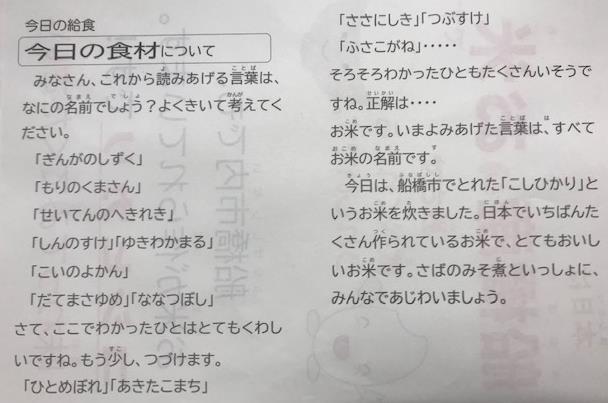 今日の給食
今日の食材について
みなさん、これから読みあげる言葉は、
なにの名前でしょう？よくきいて考えてく
ださい。
「ぎんがのしずく」
「もりのくまさん」
「せいてんのへきれき」
「しんのすけ」「ゆきわかまる」
「こいのよかん」
「だてまさゆめ」「ななつぼし」
さて、ここでわかったひとはとてもくわし
いですね。もう少し、つづけます。
「ひとめぼれ」「あきたこまち」
「ささにしき」「つぶすけ」
「ふさこがね」・・・・・
そろそろわかったひともたくさんいそうで
すね。正解は・・・・
お米です。いまよみあげた言葉は、すべて
お米の名前です。
今日は、船橋市でとれた「こしひかり」と
いうお米を炊きました。日本でいちばんた
くさん作られているお米で、とてもおいし
いお米です。さばのみそ煮といっしょに、
みんなであじわいましょう。